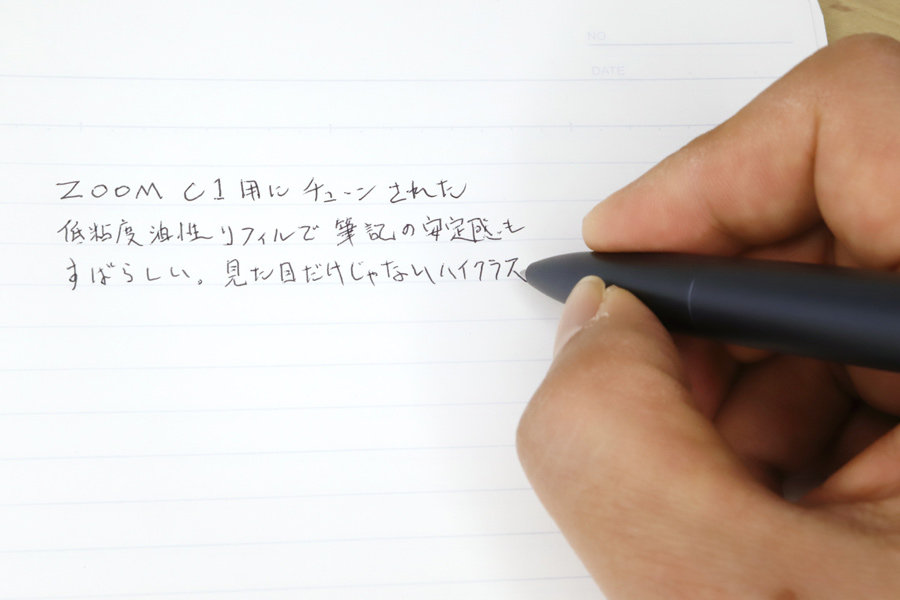 NO
DATE
ZOOM C1用に チューンされた
低粘度油性リフィルで 筆記の安定感も
すばらしい。見た目だけじゃないハイクラス